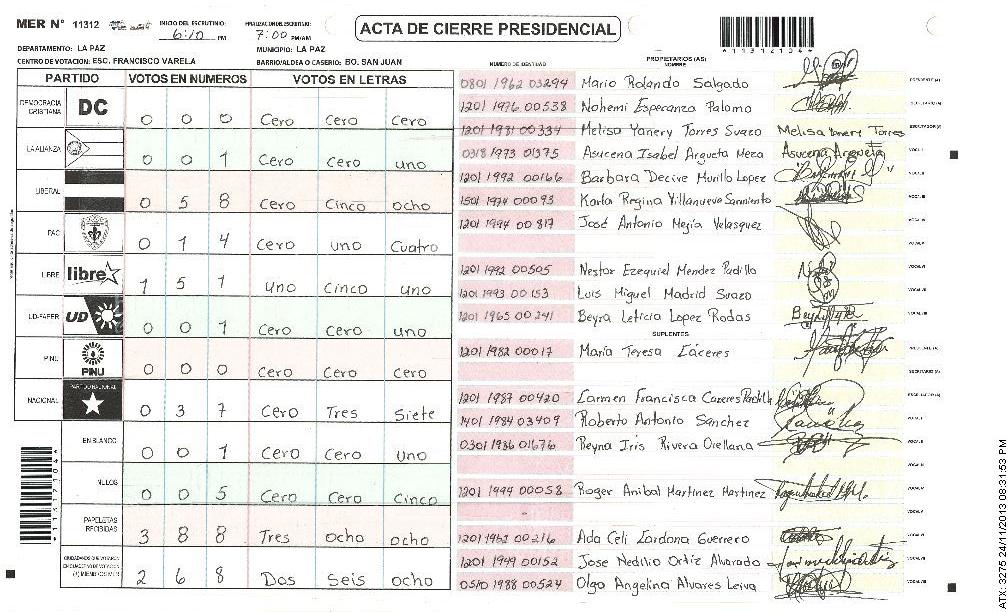 MER N° 11312
INICIO DEL ESCRUTINIO: 6:10 PM
FINALIZACION DEL ESCRUTINIO: 7:00 PM/AM
ACTA DE CIERRE PRESIDENCIAL
DEPARTAMENTO: LA PAZ
MUNICIPIO: LA PAZ
CENTRO DE VOTACION: ESC. FRANCISCO VARELA
BARRIO/ALDEA O CASERIO: BO. SAN JUAN
PARTIDO VOTOS EN NUMEROS VOTOS EN LETRAS
DEMOCRACIA CRISTIANA DC 0 0 0 Cero Cero Cero
LA ALIANZA 0 0 1 Cero Cero uno
LIBERAL 0 5 8 Cero Cinco ocho
PAC 0 1 4 Cero uno Cuatro
LIBRE libre 1 5 1 uno Cinco uno
UD-FAPER UD 0 0 1 Cero Cero uno
PINU PINU 0 0 0 Cero Cero Cero
NACIONAL PARTIDO NACIONAL 0 3 7 Cero Tres Siete
EN BLANCO 0 0 1 Cero Cero uno
NULOS 0 0 5 Cero Cero Cinco
PAPELETAS RECIBIDAS 3 8 8 Tres ocho ocho
2 6 8 Dos Seis ocho
NUMERO DE IDENTIDAD
PROPIETARIOS (AS)
NOMBRE
0801 1962 03294 Mario Rolando Salgado
1201 1976 00538 Nohemi Esperanza Palomo
1201 1981 00334 Melisa Yanery Torres Suazo Melisa Yanery Torres
0318 1973 01375 Asucena Isabel Argueta Meza Asucena Argueta
1201 1992 00166 Barbara Decire Murillo Lopez
1501 1974 00093 Karla Regina Villanueva Sarmiento
1201 1994 00817 José Antonio Mejía Velasquez
1201 1992 00505 Nestor Ezequiel Mendez Padilla
1201 1993 00153 Luis Miguel Madrid Suazo
1201 1965 00241 Beyra Leticia Lopez Rodas
SUPLENTES
1201 1982 00017 María Teresa Cáceres
1201 1987 00420 Carmen Francisca Cazeres Padilla
1401 1984 03409 Roberto Antonio Sanchez
0301 1986 01676 Reyna Iris Rivera Orellana
1201 1994 00058 Roger Anibal Martinez Martinez
1201 1962 00216 Ada Celi Cardona Guerrero
1201 1949 00152 Jose Nedilio Ortiz Alvarado
0510 1988 00524 Olga Angelina Alvares Leiva
ATX-3275 24/11/2013 08:31:53 PM